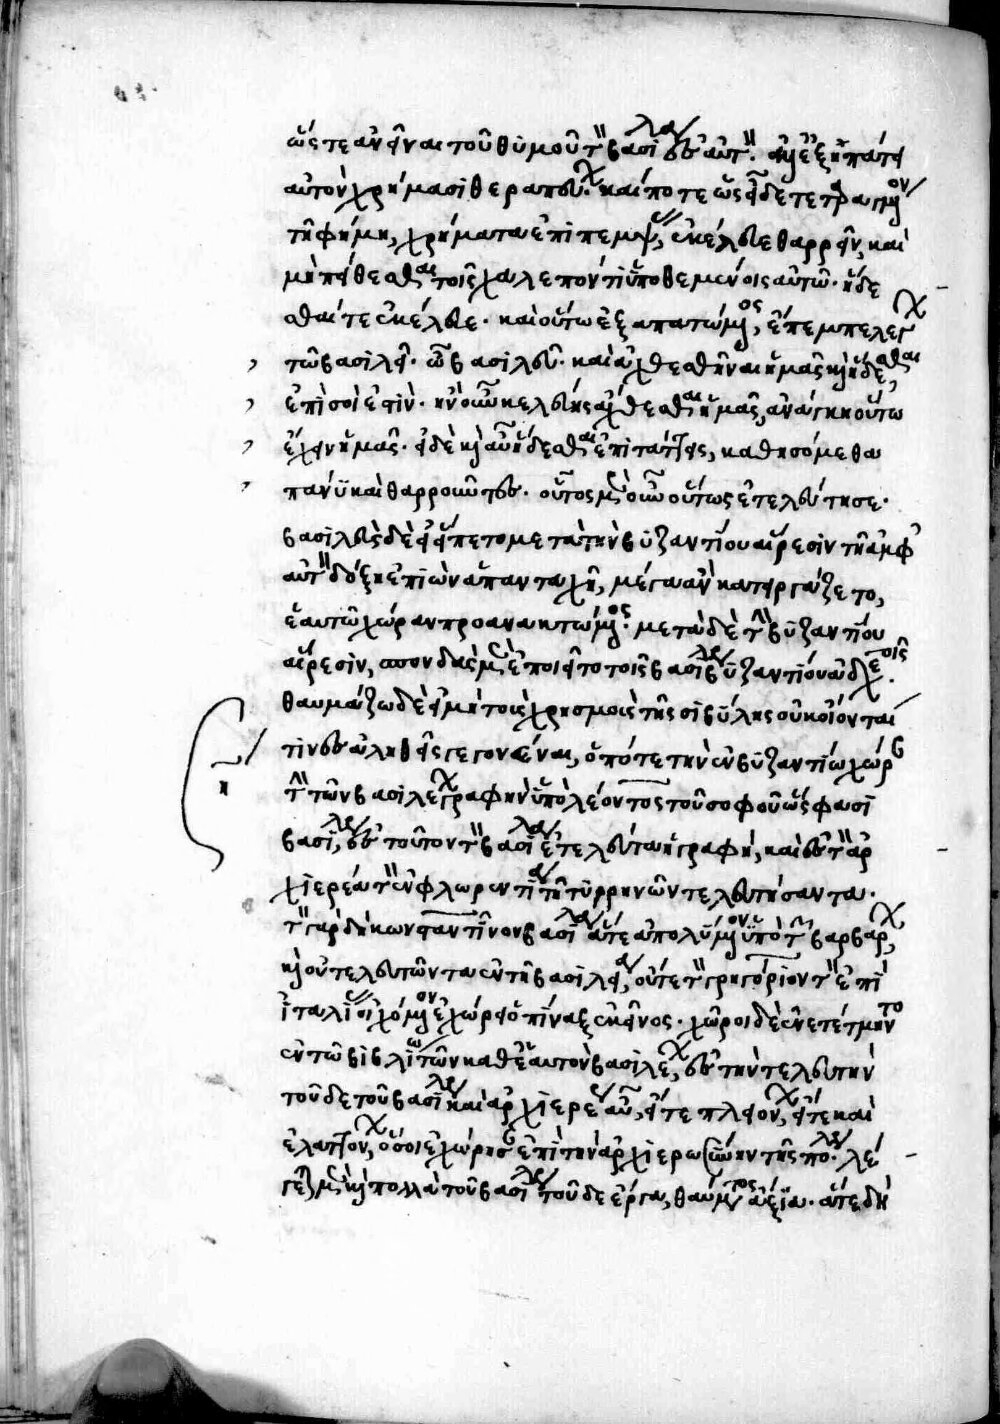 ὥστε ἀνεῖναι τοῦ θυμοῦ τὸν βασιλέα ἐς αὐτόν. καὶ ἐξηπάτα
αὐτὸν χρήμασι θεραπεύων. καί ποτε ὡς εἶδε τεταραγμένον
τῇ φήμῃ, χρήματα ἐπιπέμψας, ἐκέλευε θαρρεῖν, καὶ
μὴ πείθεσθαι τοῖς χαλεπόν τι ὑποθεμένοις αὐτῷ. ἥδε
σθαί τε ἐκέλευε. καὶ οὕτω ἐξαπατώμενος, ἔπεμπε λέγων
τῷ βασιλεῖ. ὦ βασιλεῦ. καὶ ἄχθεσθῆναι ἡμᾶς καὶ ἥδεσθαι
ἐπὶ σοί ἐστιν. ἢν οὖν κελεύῃς ἄχθεσθαι ἡμᾶς, ἀνάγκη οὕτω
ἔχειν ἡμᾶς. εἰ δὲ καὶ αὖ ἥδεσθαι ἐπιτάττεις, καθησόμεθα
πανὺ καὶ θαρροῦντες. οὗτος μὲν οὖν οὕτως ἐτελεύτησε.
βασιλεὺς δὲ εἵπετο μετὰ τὴν βυζαντίου αἵρεσιν τῇ ἀμφ'
αὐτὸν δόξῃ ἐπιὼν ἁπανταχῇ, μέγα ἂν κατειργάζετο,
ἑαυτῷ χώραν προανακτώμενος. μετὰ δὲ τὴν βυζαντίου
αἵρεσιν, σπονδὰς μὲν ἐποιεῖτο τοῖς βασιλέως βυζαντίου ἀδελ τοῖς
θαυμάζω δὲ εἰ μὴ τοὶς χρησμοὶς τῆς σιβύλης οὐκ οἴονται
τινὲς ἀληθεῖς γεγονέναι, ὁπότε τὴν ἐν βυζαντίῳ χώρα
τὴν τῶν βασιλέων γραφὴν ὑπὸ λέοντος τοῦ σοφοῦ ὥς φασι
βασιλέως, ἐς τοῦτον τὸν βασιλέα ἐτελεύτα ἡ γραφή, καὶ ἐς τὸν ἀρ
χιερέα τὸν ἐν φλωρεντίᾳ τῇ τυρρηνῶν τελευτήσαντα.
τὸν γὰρ δὴ κωνσταντῖνον βασιλέα ἅτε ἀπολύμενον ὑπὸ τῶν βαρβάρων,
καὶ οὐ τελευτῶντα ἐν τῇ βασιλεία, οὔτε τὸν γρηγόριον τὸν ἐπὶ
ἰταλίας οἰχόμενον ἐχώρει ὁ πίναξ ἐκεῖνος. χῶροι δὲ ἐνετέτμηντο
ἐν τῷ βιβλίῳ τῶν καθ' ἑαυτὸν βασιλέων, ἐς τὴν τελευτὴν
τοῦδε τοῦ βασιλέως καὶ ἀρχιερέως αὖ, εἴτε πλειόνων, εἴτε καὶ
ἐλαττόνων, ὅσοι ἐχώρησαν ἐπὶ τὴν ἀρχιερωσύνην τῆς πόλεως. λέ
γεται μὲν καὶ πολλὰ τοῦ βασιλέως τοῦδε ἔργα, θαύματος ἄξια. ἅτε δὴ